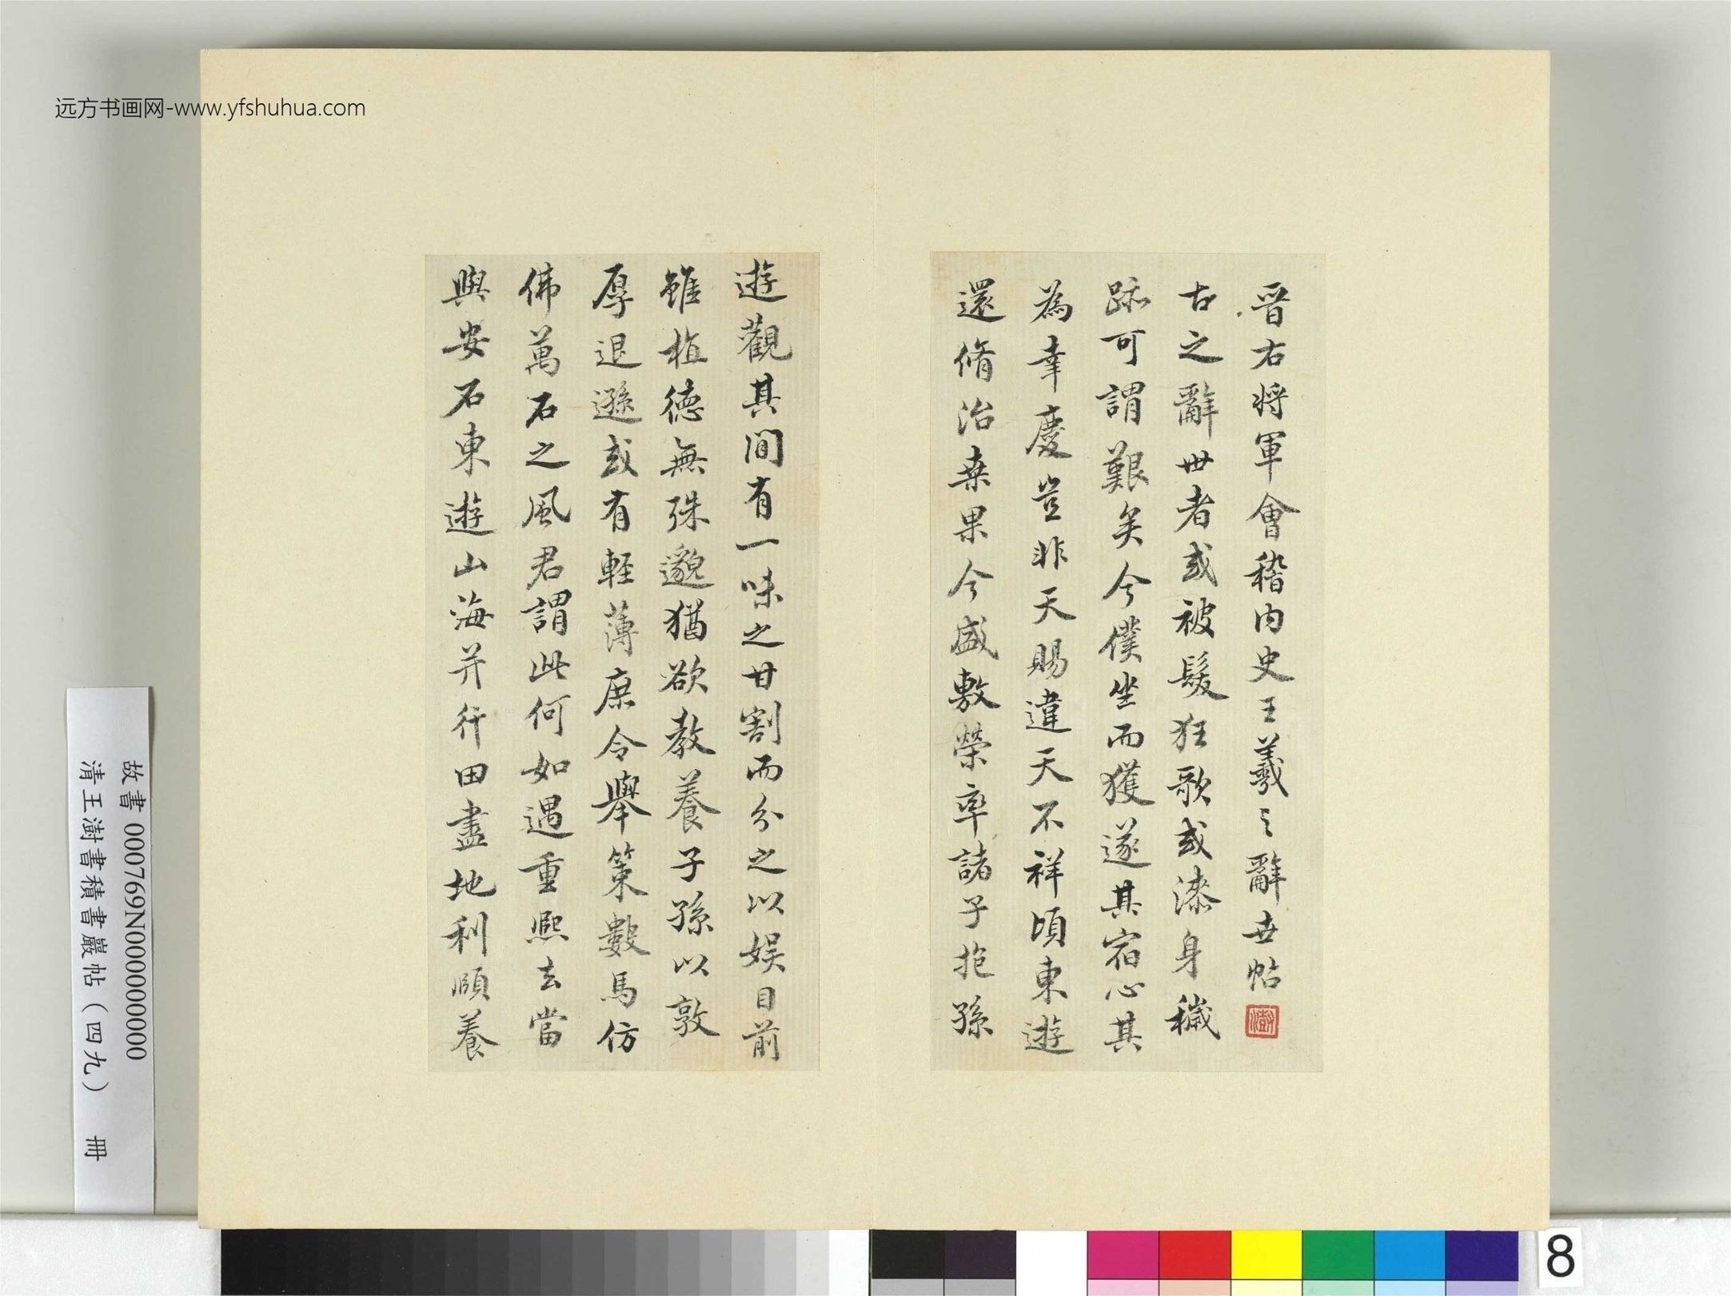 远方书画网-www.yfshuhua.com
晉右将軍會稽内史王羲之辭世帖
澍
古之辭世者或被髮狂歌或漆身穢
跡可謂艱矣今僕坐而獲遂其宿心其
為幸慶豈非天賜違天不祥頃東遊
還脩治桒果今盛敷榮率諸子抱孫
遊觀其間有一味之甘割而分之以娱目前
雖植德無殊邈猶欲教養子孫以敦
厚退遜或有輕薄庶令舉策數馬仿
佛萬石之風君謂此何如遇重熙去當
與安石東遊山海并行田盡地利頤養
故書 000769N000000000
清王澍書積書巖帖（四九） 冊
8